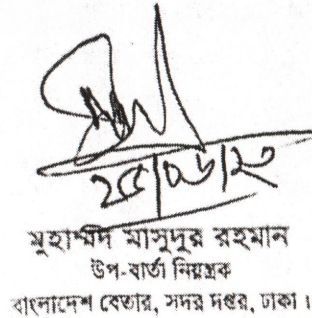 মুহাম্মদ মাসুদুর রহমান
উপ-বার্তা নিয়ন্ত্রক
বাংলাদেশ বেতার, সদর দপ্তর, ঢাকা।